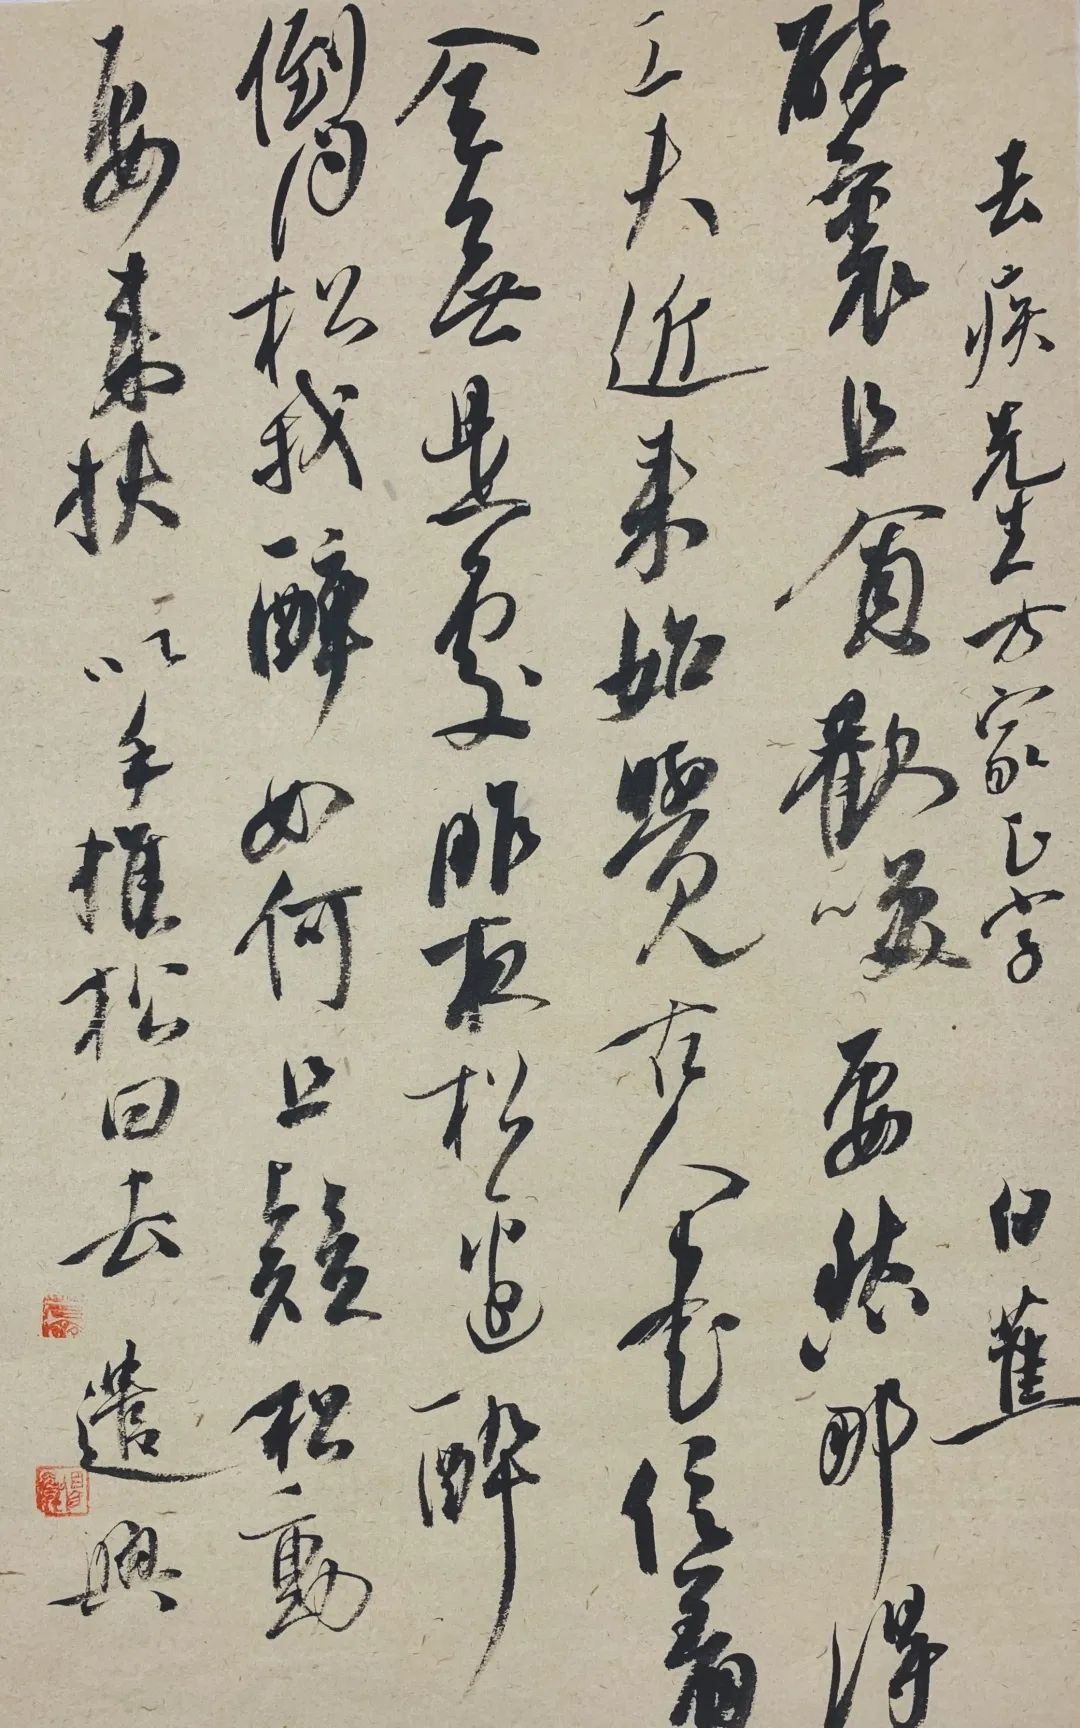 去疾先生方家正字 白蕉
醉裏且貪歡笑要愁那得
工夫近来始覺古人書信着
全無是處昨夜松邊醉
倒问松我醉如何且疑松動
要来扶以手推松曰去 遣興